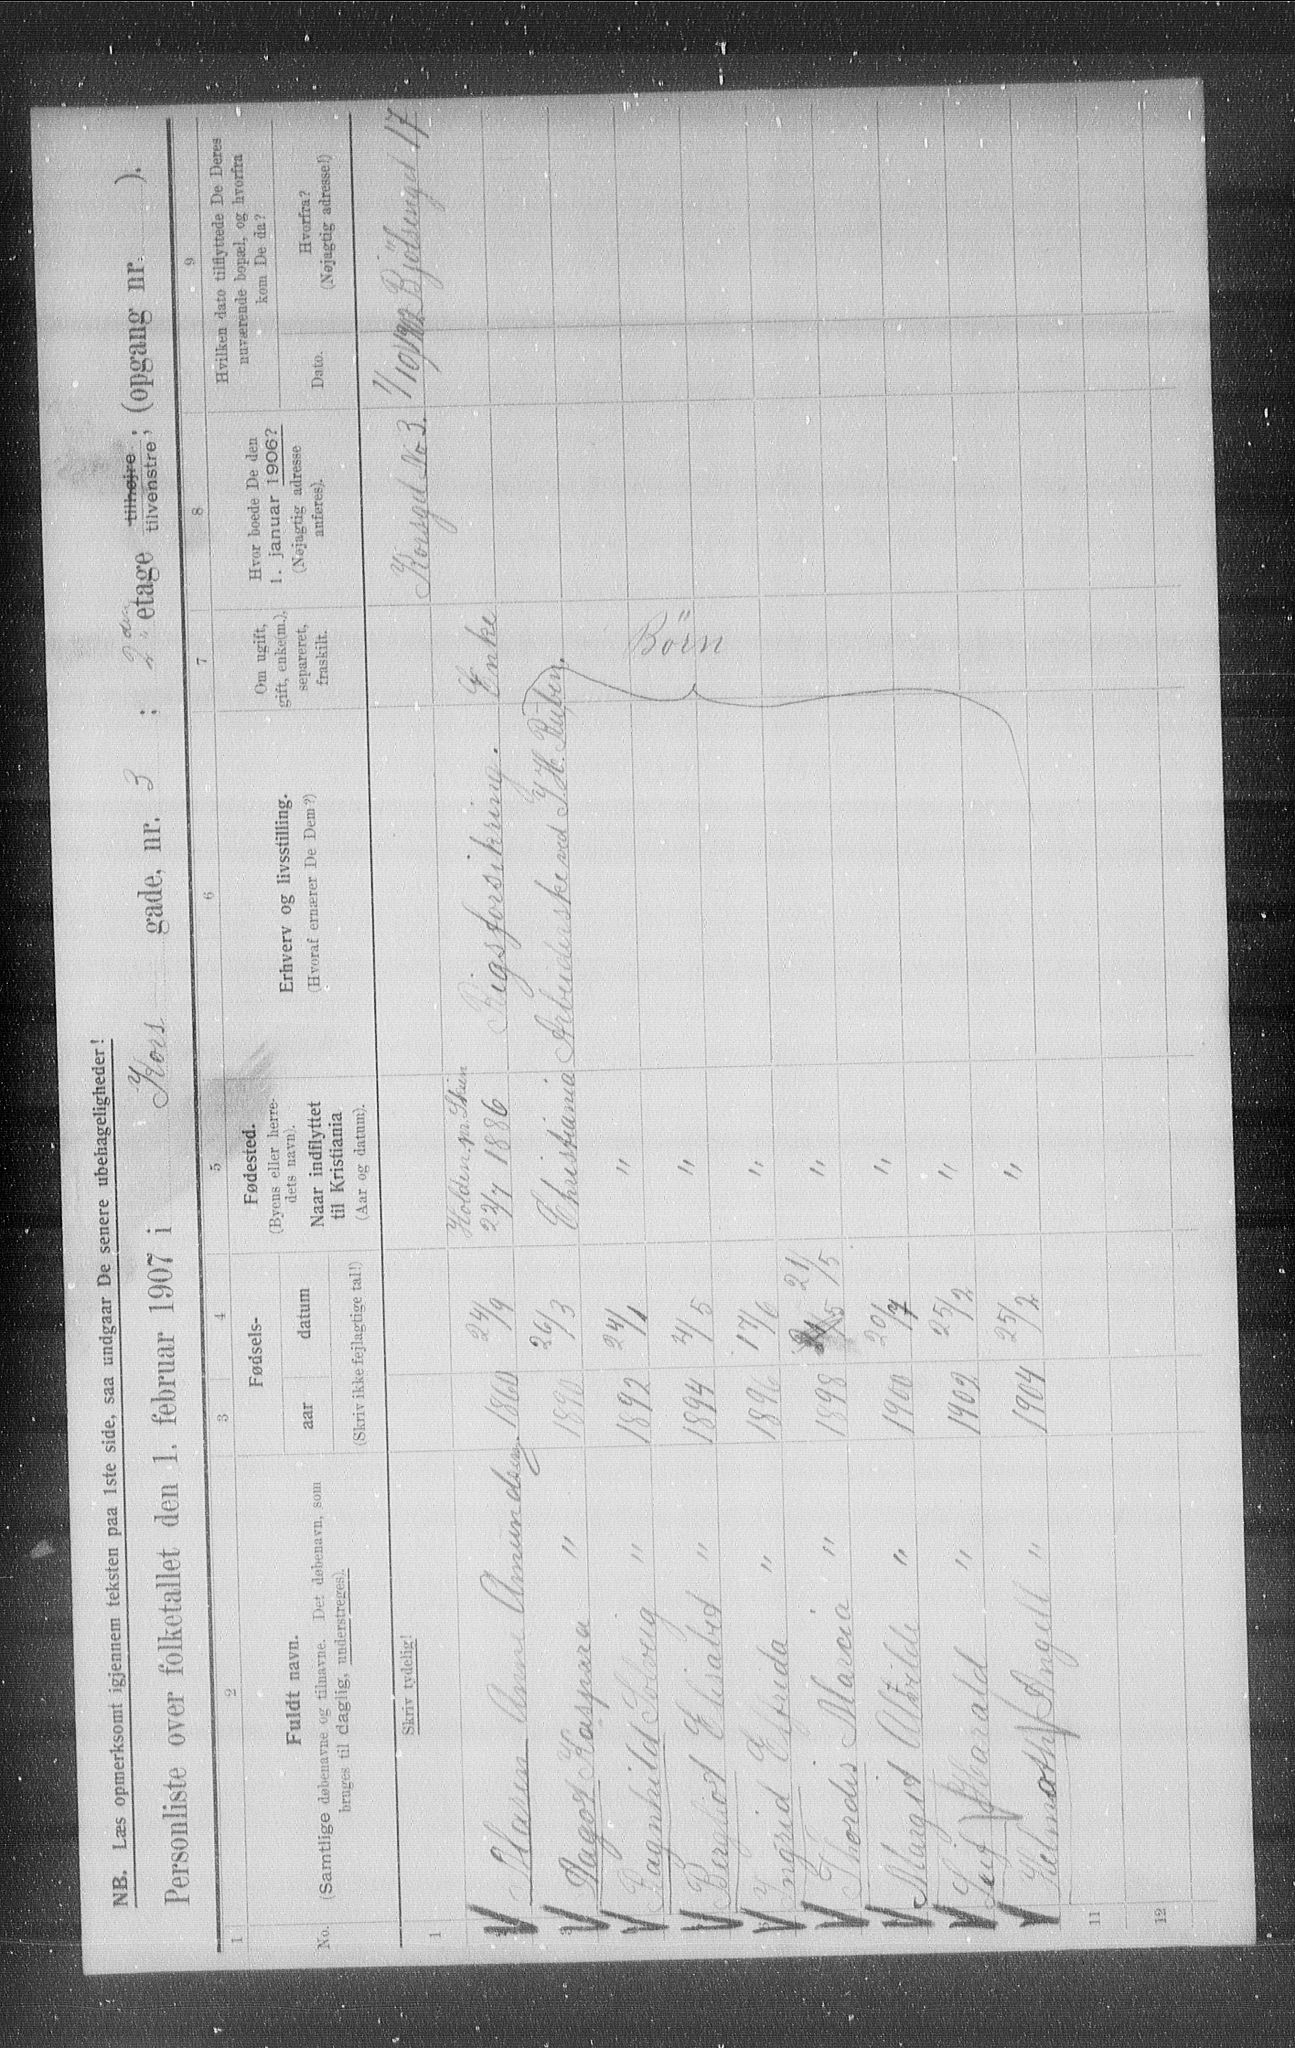 NB. Læs opmerksomt igjennem teksten paa 1ste side, saa undgaar De senere ubehageligheder!
Personliste over folketallet den 1. februar 1907 i Kors gade, nr. 3 ; 2den etage tilhøjre tilvenstre ; (opgang nr. ).
1 2 3 4 5 6 7 8 9
No.
Fuldt navn.
(Samtlige døbenavne og tilnavne. Det døbenavn, som
bruges til daglig, understreges).
Fødsels-
aar datum
(Skriv ikke fejlagtige tal!)
Fødested.
(Byens eller herre-
dets navn).
Naar indflyttet
til Kristiania
(Aar og datum).
Erhverv og livsstilling.
(Hvoraf ernærer De Dem?)
Om ugift,
gift, enke(m.),
separeret,
fraskilt.
Hvor boede De den
1. januar 1906?
(Nøjagtig adresse
anføres).
Hvilken dato tilflyttede De Deres
nuværende bopæl, og hvorfra
kom De da?
Dato.
Hvorfra?
(Nøjagtig adresse!)
Skriv tydelig!
1 Korsgd No 3. 1/10 1902 Bjölsengd 17
Holden pr. Skien
Maren Anne Amundsen. 1860 24/9 22/7 1886 Rigsforsikring. Enke
3 Dagot Kaspara " 1890 26/3 Christiania Arbeiderske ved J. H. Ruben.
Ragnhild Solveig " 1892 24/1 " Börn
Bergliot Elisabet " 1894 4/5 "
Ingrid Elfrida " 1896 17/6 "
Thordis Maria " 1898 21/5 "
Margit Alvilde " 1900 20/7 "
Leif Harald " 1902 25/2 "
Helmoth Angell " 1904 25/2 "
11
12